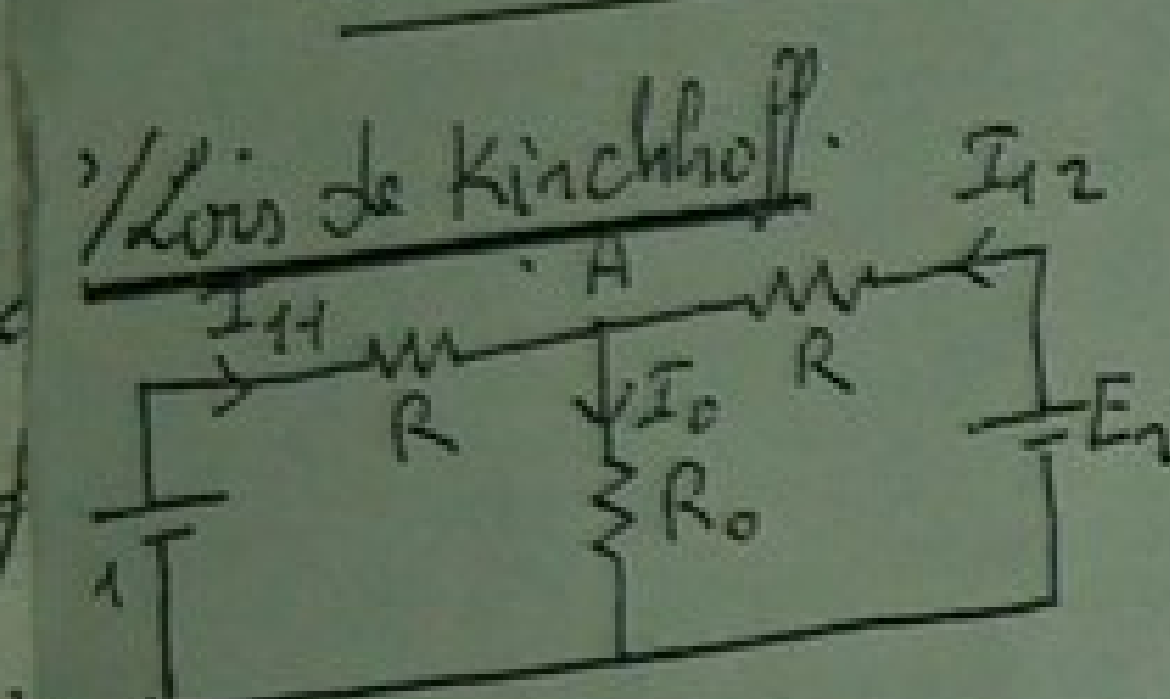 /Lois de Kirchhoff.
I12
A
I11
R
R
I0
R0
E2
1